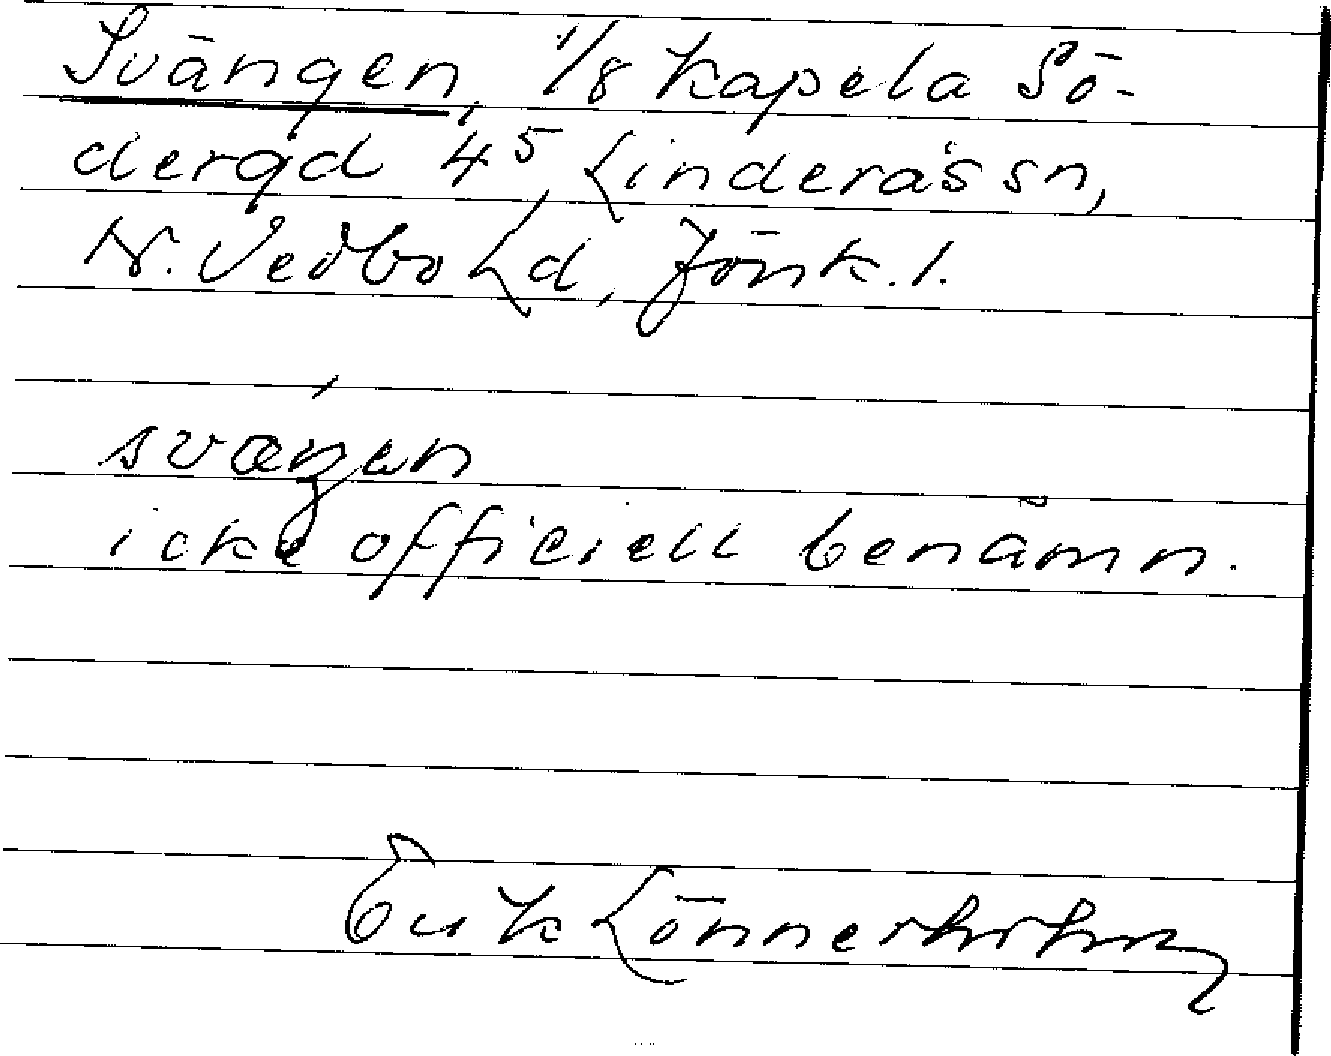 Svängen, 1/8 Kapela Sö-
dergd 4⁵, Linderås sn,
N. Vedbo hd, Jönk. l.
svæŋən
icke officiell benämn.
Erik Lönnerholm